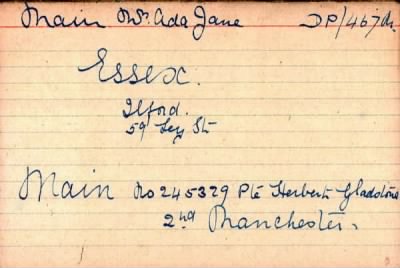 Main Mrs. Ada Jane DP/467
Essex.
Ilford.
59 Ley St
Main No 245329 Pte Herbert Gladstone
2nd Manchester.